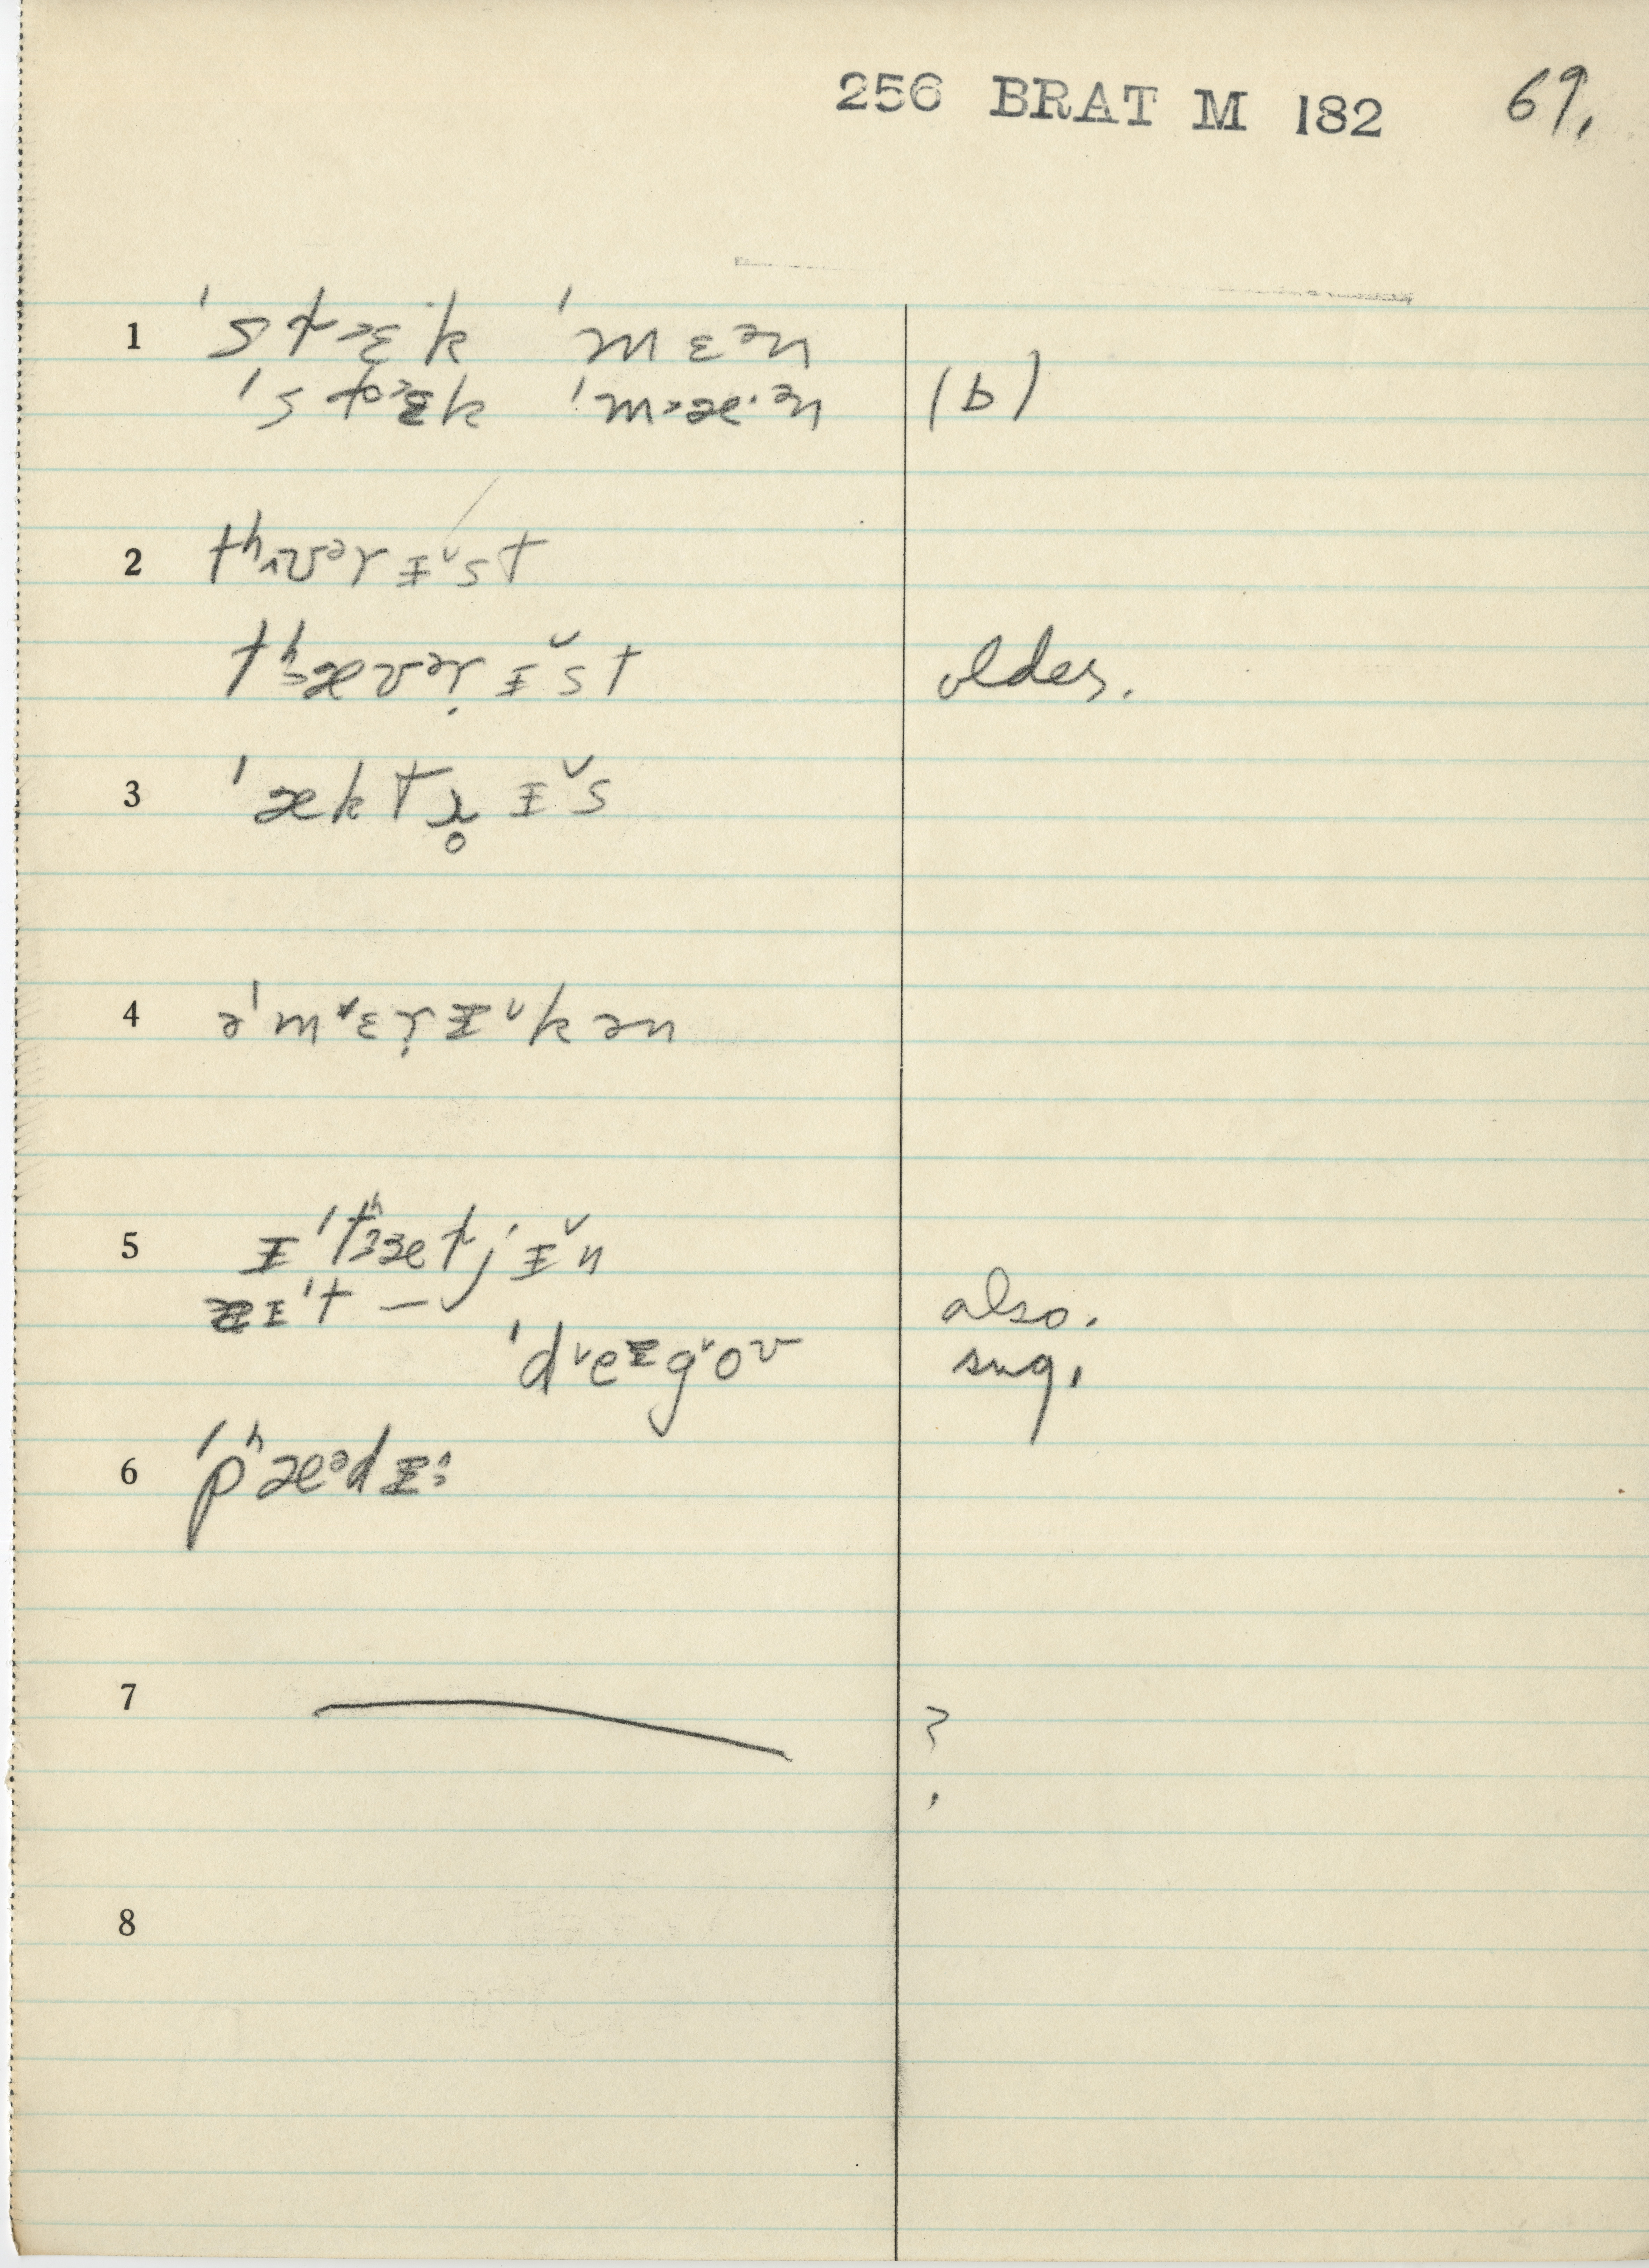 256 BRAT M 182 69.
1 ˈst˃ɛ̝k ˈmɛᵊn
ˈst˃ɛk ˈm˃æ·ᵊn (b)
2 tʰʌvᵊrɪ̆st
tʰævᵊṛɪ̆st older.
3 ˈæktɹ̥ɪ̆s
4 əˈm˅ɛṛɪ˅kən
5 ɪˈtʰætjɪ̆n
ɪˈt — also.
ˈd˅eɪg˅oʊ sug.
6 ˈpʰæᵊdɪ:
7 — ?
8